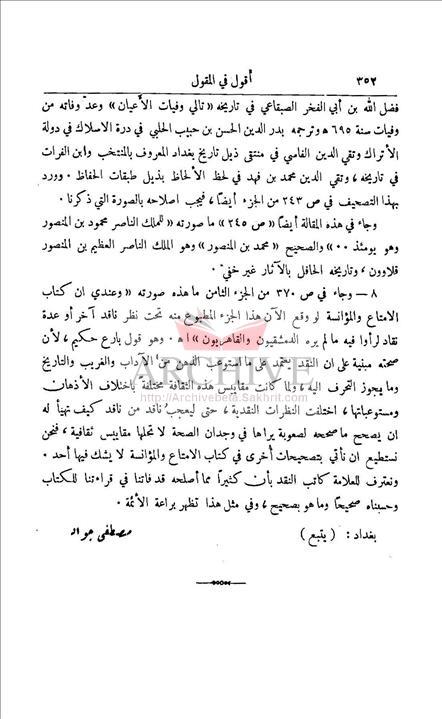 ٣٥٢ أقول في المقول
فضل الله بن أبي الفخر الصبقاعي في تاريخه «تالي وفيات الأعيان» وعدّ وفاته من
وفيات سنة ٦٩٥ هـ وترجمه بدر الدين الحسن بن حبيب الحلبي في درة الاسلاك في دولة
الأتراك وتقي الدين الفاسي في منتقى ذيل تاريخ بغداد المعروف بالمنتخب وابن الفرات
في تاريخه، وتقي الدين محمد بن فهد في لحظ الألحاظ بذيل طبقات الحفاظ. وورد
بهذا التصحيف في ص ٢٤٣ من الجزء أيضاً، فيجب اصلاحه بالصورة التي ذكرنا.
وجاء في هذه المقالة أيضاً «ص ٢٤٥» ما صورته «للملك الناصر محمود بن المنصور
وهو يومئذ ٠٠» والصحيح «محمد بن المنصور» وهو الملك الناصر العظيم بن المنصور
قلاوون، وتاريخه الحافل بالآثار غير خفي.
٨ – وجاء في ص ٣٧٠ من الجزء الثامن ما هذه صورته «وعندي ان كتاب
الامتاع والمؤانسة لو وقع الآن هذا الجزء المطبوع منه تحت نظر ناقد آخر أو عدة
نقاد لرأوا فيه ما لم يره الدمشقيون والقاهريون» اهـ. وهو قول بارع حكيم، لأن
صحته مبنية على ان النقد يعتمد على ما استوعب الذهن من الآداب والغريب والتاريخ
وما يجوز التحرف اليه، ولما كانت مقاييس هذه الثقافة مختلفة باختلاف الأذهان
ومستوعباتها، اختلفت النظرات النقدية، حتى ليعجب ناقد من ناقد كيف تهيأ له
ان يصحح ما صححه لصعوبة يراها في وجدان الصحة لا تحلها مقاييس ثقافية، فنحن
نستطيع ان نأتي بتصحيحات أخرى في كتاب الامتاع والمؤانسة لا يشك فيها أحد.
ونعترف للعلامة كاتب النقد بأن كثيراً مما أصلحه قد فاتنا في قراءتنا للكتاب
وحسبناه صحيحاً وما هو بصحيح، وفي مثل هذا تظهر براعة الأئمة.
بغداد: (يتبع) مصطفى جواد
ARCHIVE
http://Archivebeta.Sakhrit.com